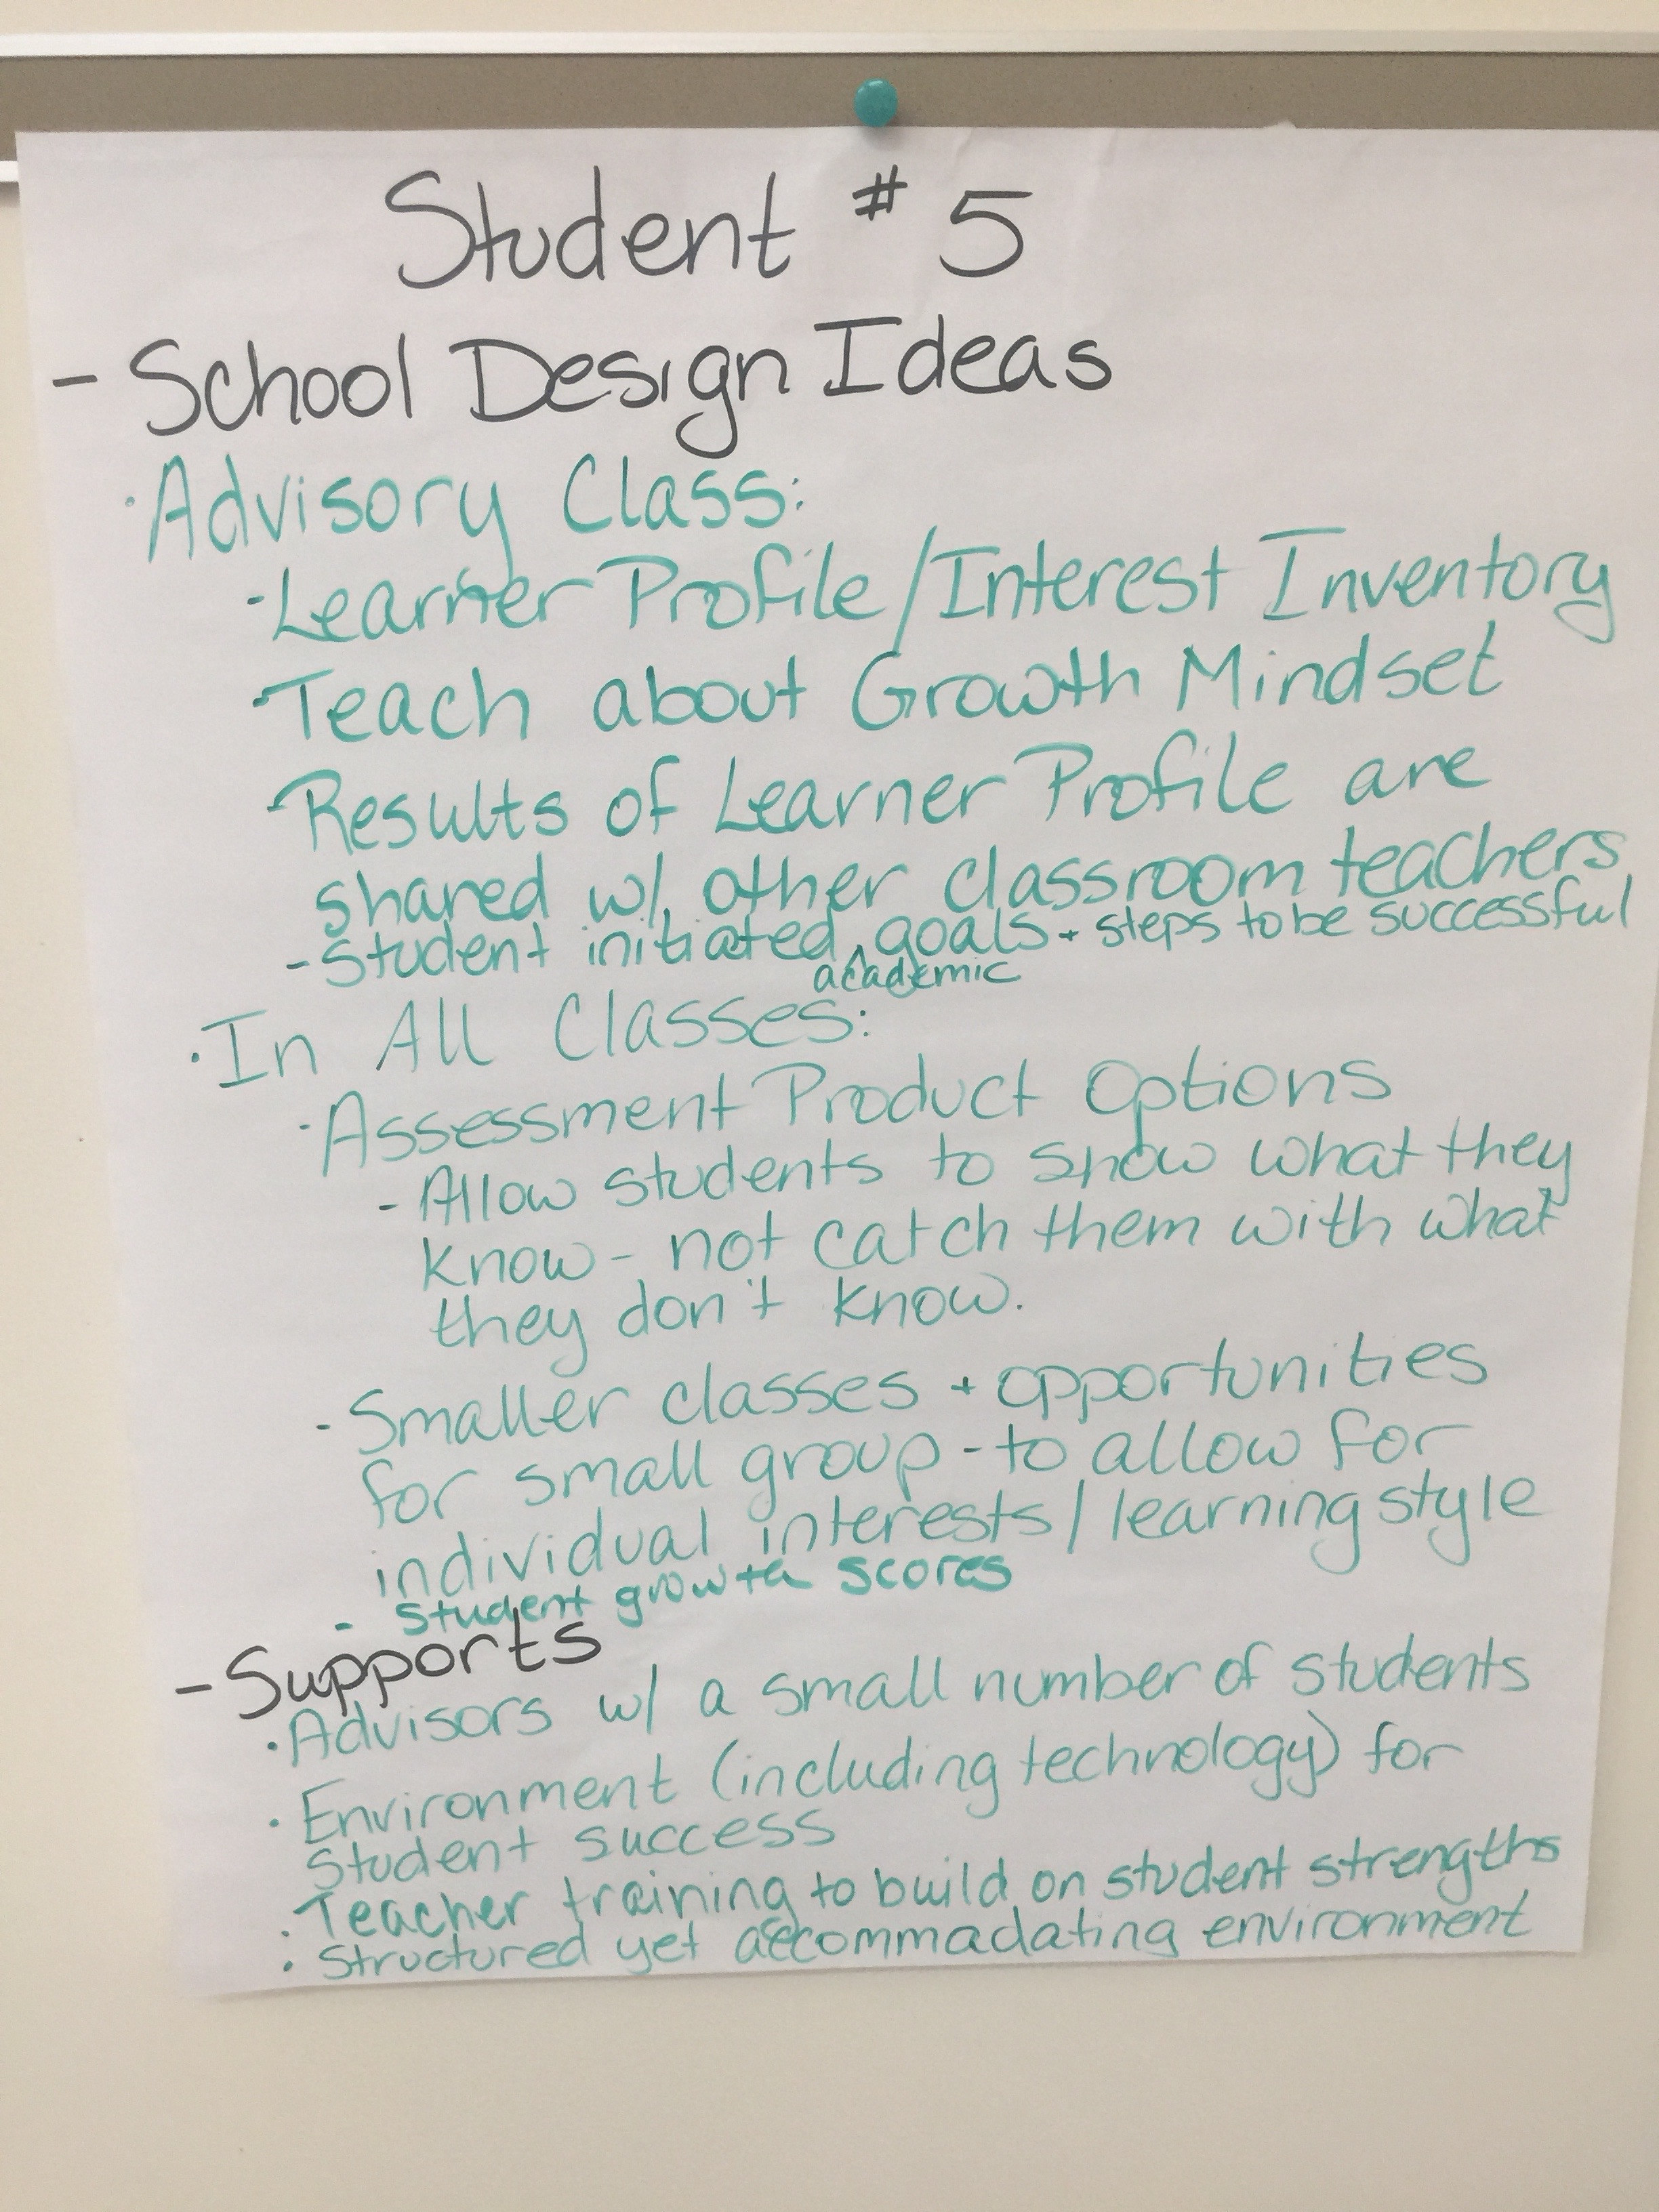 Student # 5
- School Design Ideas
· Advisory Class:
- Learner Profile/Interest Inventory
· Teach about Growth Mindset
- Results of Learner Profile are
shared w/ other classroom teachers
- Student initiated ^ goals + steps to be successful
academic
· In All Classes:
· Assessment Product Options
- Allow students to show what they
know - not catch them with what
they don't know.
- Smaller classes + opportunities
for small group - to allow for
individual interests / learning style
- Student growth scores
- Supports
· Advisors w/ a small number of students
· Environment (including technology) for
student success
· Teacher training to build on student strengths
· Structured yet accommadating environment